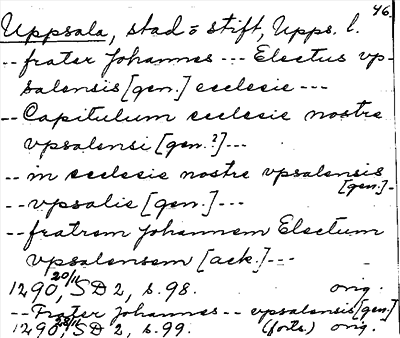 46.
Uppsala, stad o stift, Upps. l.
-- frater Johannes --- Electus vp-
salensis [gen.] ecclesie ---
-- Capitulum ecclesie nostre
vpsalensi [gen.?] ---
-- in ecclesie nostre vpsalensis
[gen.] -
-- vpsalie [gen.] ---
-- fratrem Johannem Electum
vpsalensem [ack.] ---
1290 20/11, SD 2, s. 98. orig.
-- Frater Johannes -- vpsalensis [gen]
1290 28/11, SD 2, s. 99. (forts.) orig.